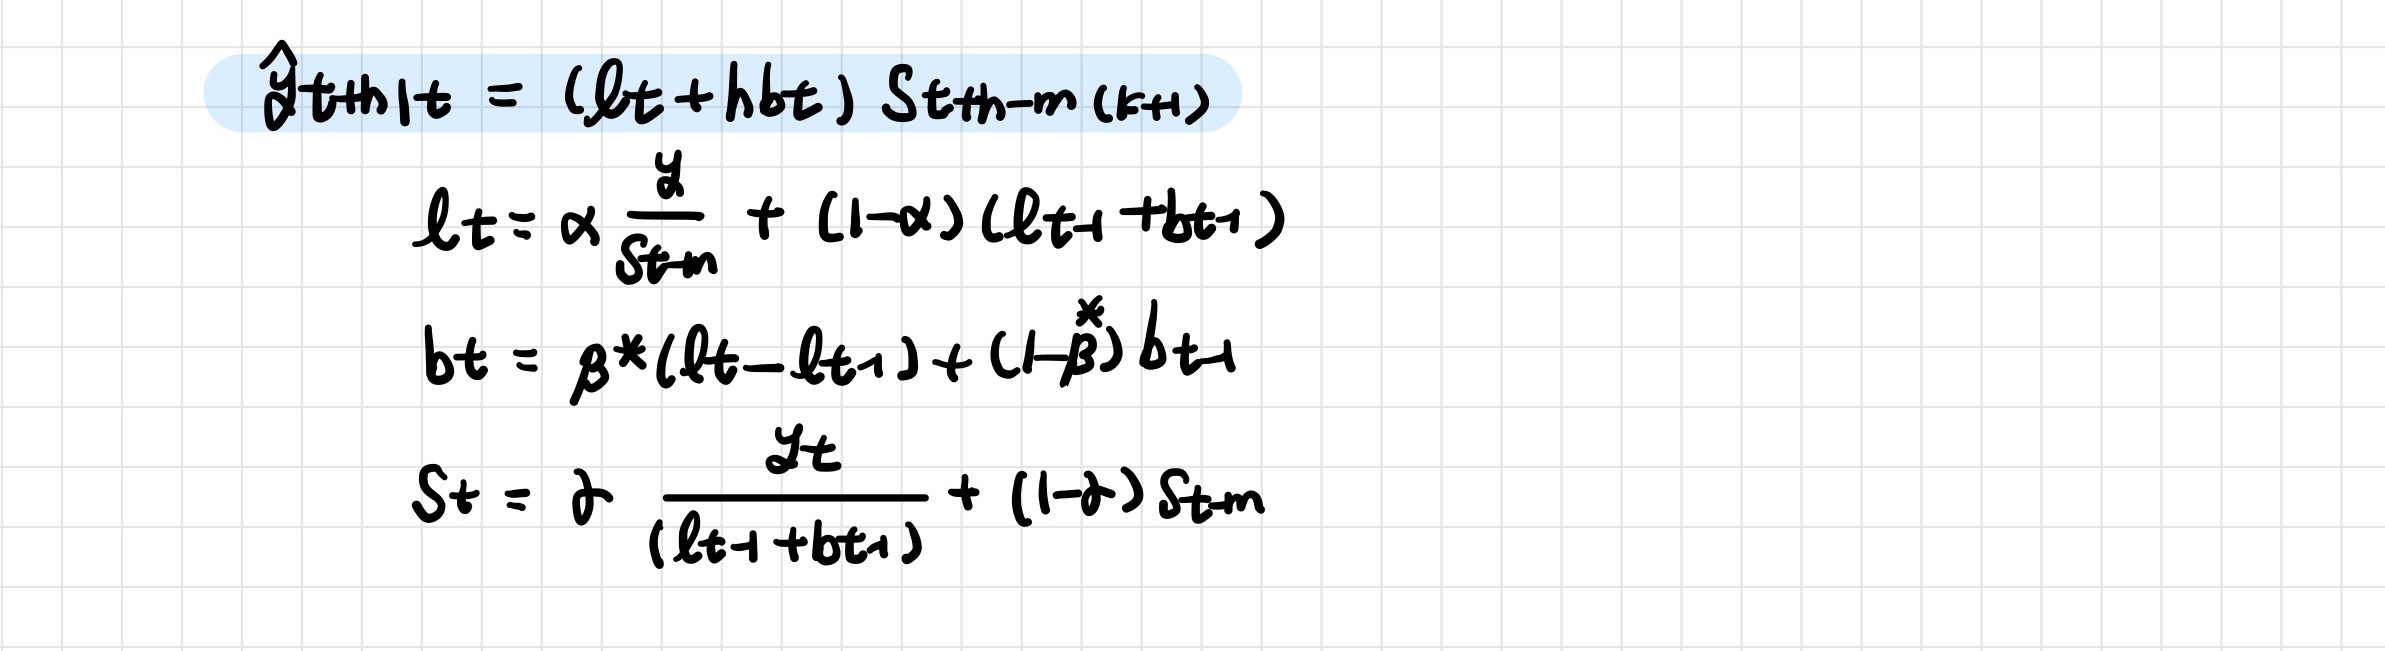 ŷt+h|t = (ℓt + hbt) St+h-m(k+1)
ℓt = α y/St-m + (1-α)(ℓt-1 + bt-1)
bt = β*(ℓt - ℓt-1) + (1-β*)bt-1
St = γ yt/(ℓt-1 + bt-1) + (1-γ)St-m